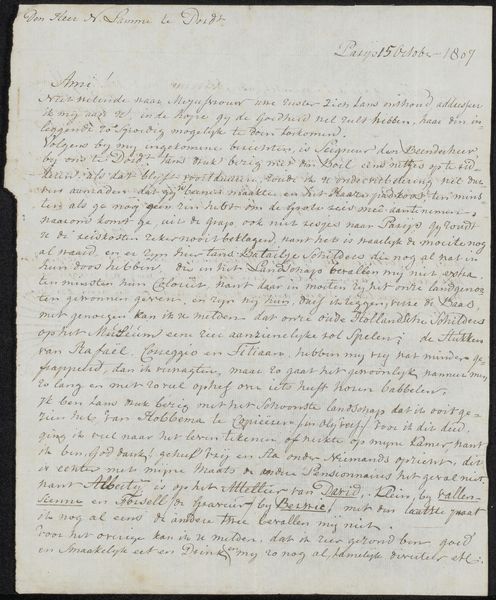 Den Heer N. Lamme te Dordt.
Parijs 15 October 1807
Ami!
Niet wetende waar Mejufvrouw uwe zuster zich thans onthoud addresseer
ik mij aan U, in de hoop gij de Goedheid zult hebben, haar den in-
leggende zo spoedig mogelijk te doen toekomen.
Volgens bij mij ingekomene berichten, is Seigneur den Beenderheer
bij ons te Dordt thans druk bezig met den Boel eens netjes op te
als dat blijft voortduuren, zoude ik U onder verbetering wel dur-
ven aanraden dat gij beenen maakte en het Haaze pad koos ten min-
sten als ge nog geen zin hebt om de Groote reis mee aanteneemen.
waarom komt ge, uit de graps ook niet eesjes naar Parijs gij zoudt
U de reiskosten zeker nooit beklagen, want het is waarlijk de moeite nog
al waard, en er zijn hier thans Schilders die nog al wat in
hun doos hebben, die in het Landschap bevallen mij niet extra
ten minsten hun Coloriet, want daar in moeten zij het onze landgenoo-
ten gewonnen geven, en zijn wij hun, durf ik zeggen, verre de Baas,
met genoegen kan ik U melden dat onze oude Hollandsche Schilders
op het Muséum een zeer aanzienelijke rol Spelen; de Stukken
van Rafaël, Coreggio en Titiaan, hebben mij vrij wat minder ge-
frappeerd, dan ik verwagten, maar zo gaat het gewoonlijk wanneer men
zo lang en met zo veel ophef over iets heeft horen babbelen,
Ik ben thans druk bezig met het Schoonste landschap dat ik ooit ge-
zien heb van Hobbema te Copiëeren, voor ik dit deed,
ging ik veel naar het leven tekenen of werkte op mijne kamer, want
ik ben, God dank! geheel vrij en Sta onder Niemands opzicht, dit
is echter met mijne Maats de andere Pensionnaires het geval niet,
want Alberti is op het Attellier van David, Klein, bij Vallen-
cienne en Forsell de Graveur bij Bervic, met den laatste praat
ik nog al eens de andere twee bevallen mij niet.
Voor het overige kan ik U melden, dat ik zeer gezond ben, goed
en Smaakelijk eet en Drink en mij zo nog al tamelijk diverteer etc: